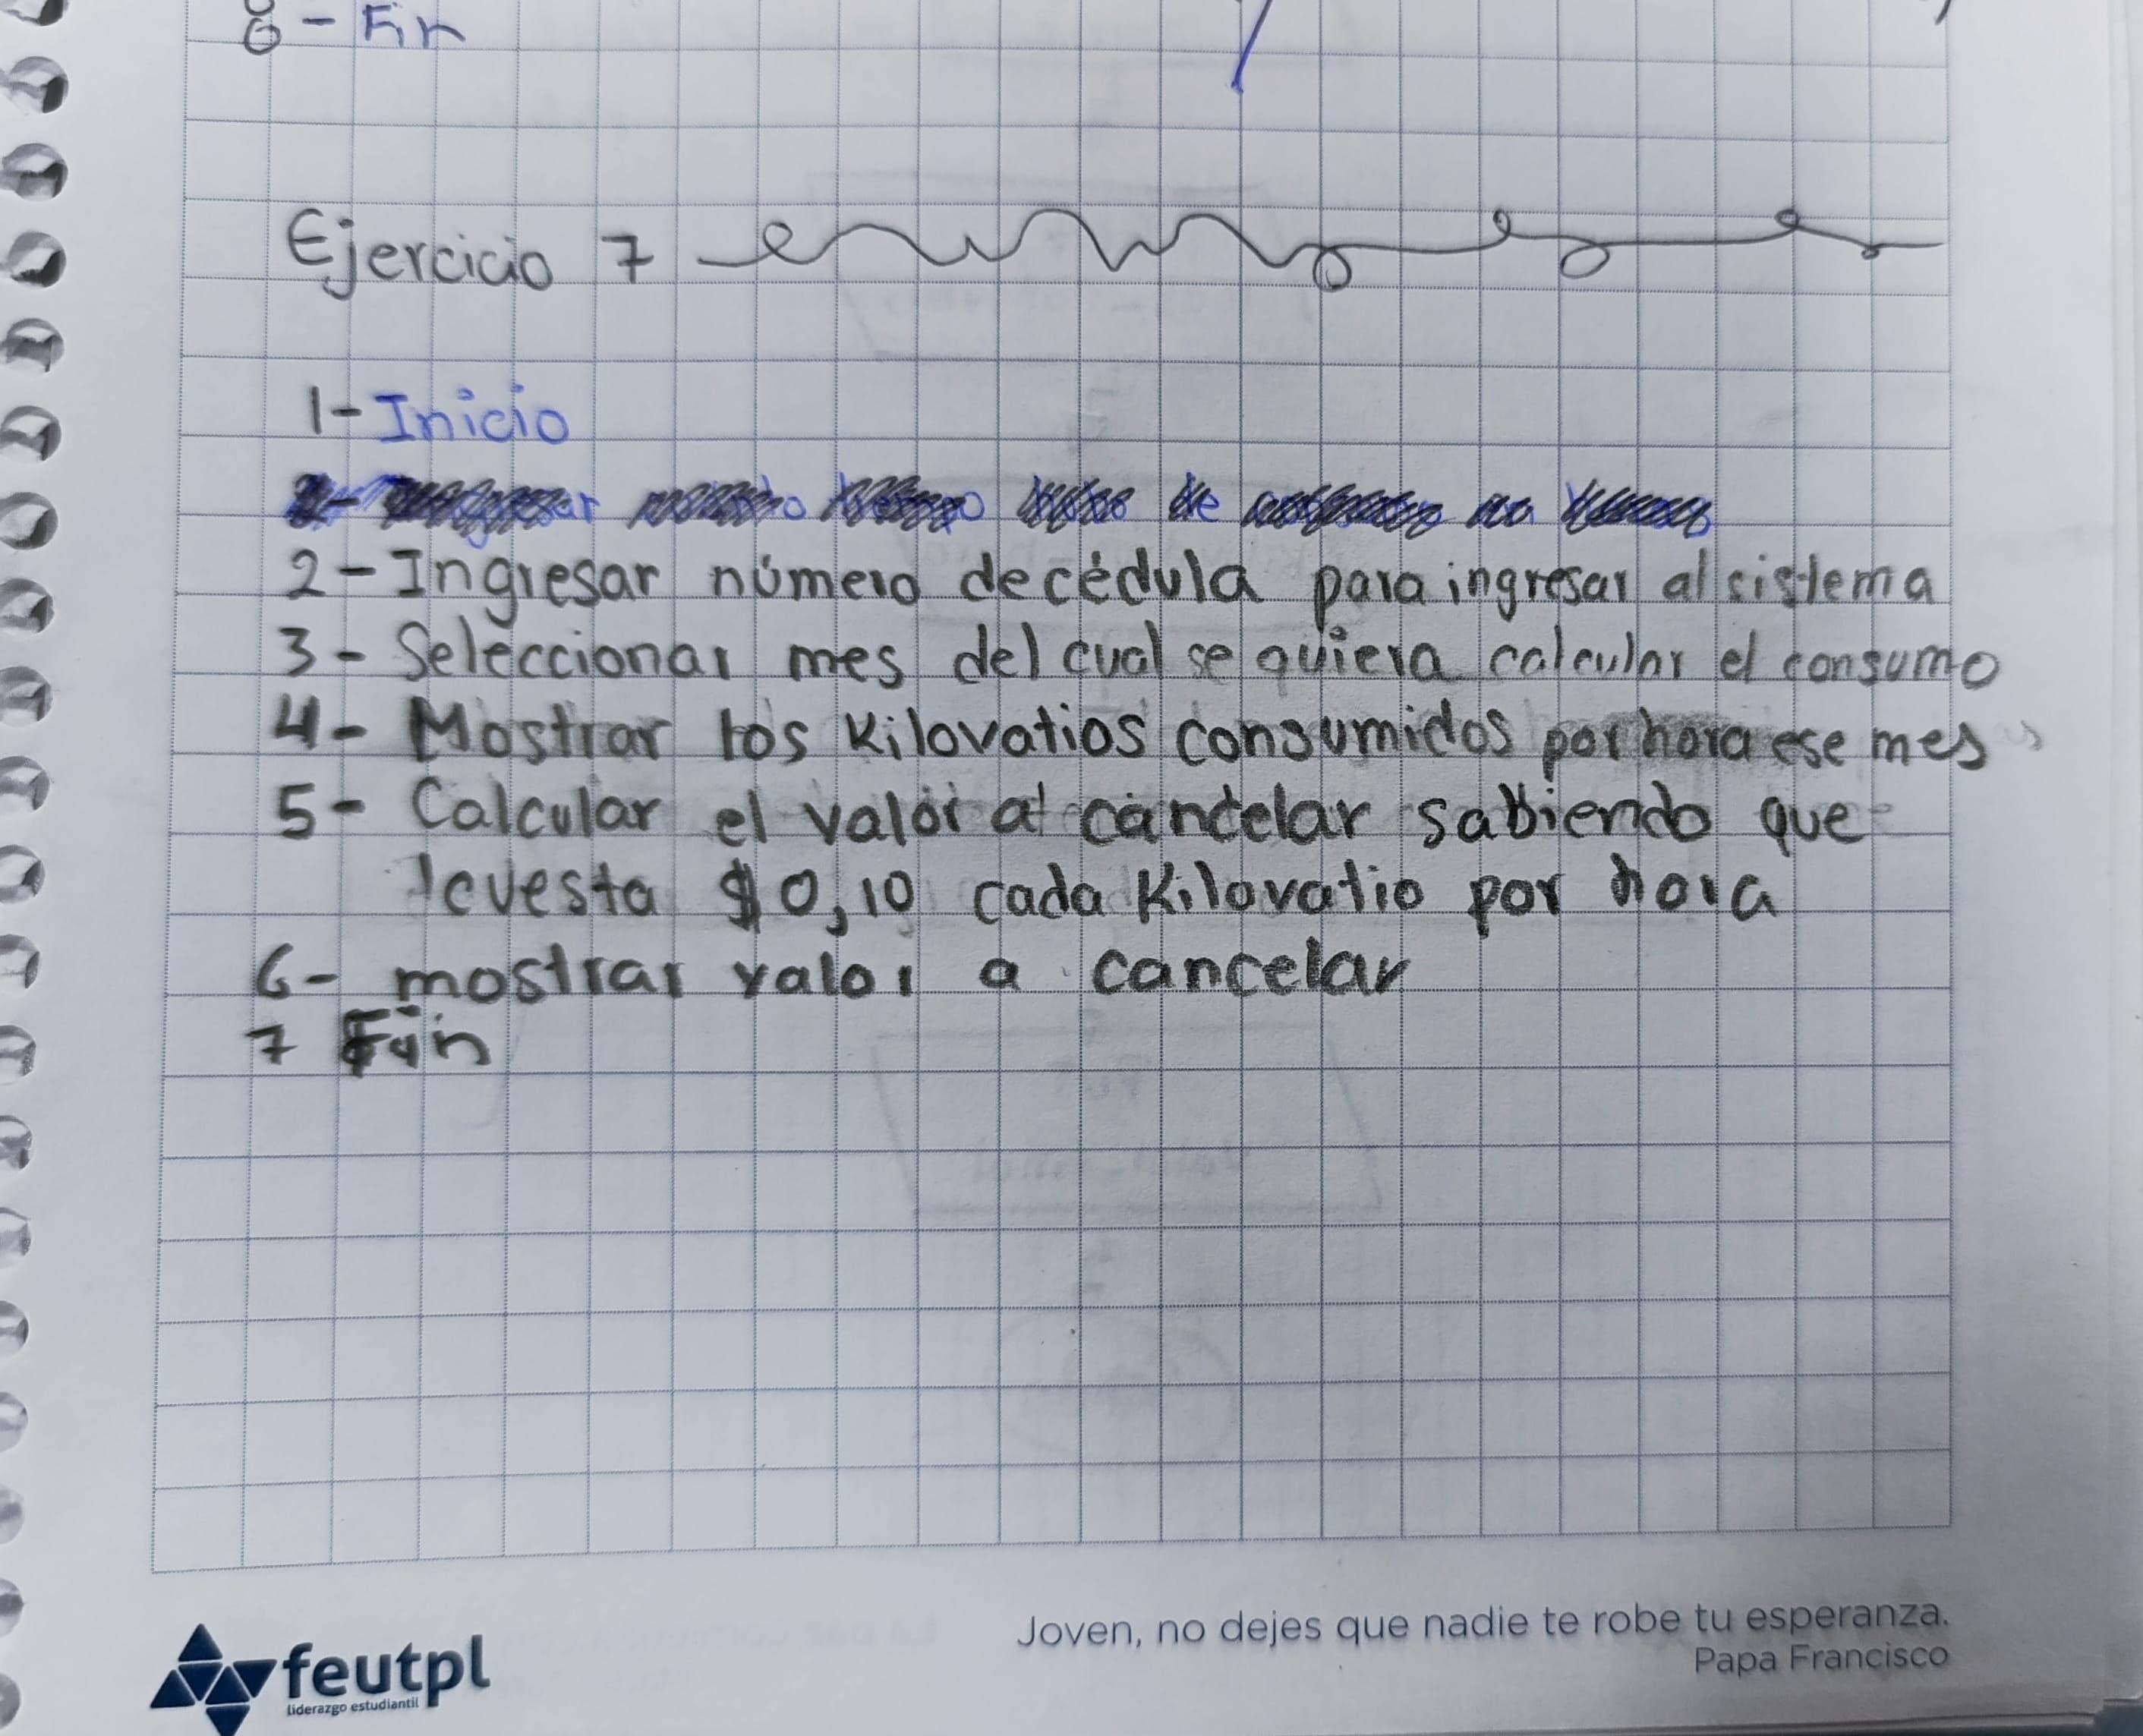 8 - Fin
Ejercicio 7
1- Inicio
2- Ingresar número de cédula para ingresar al sistema
3- Seleccionar mes del cual se quiera calcular el consumo
4- Mostrar los Kilovatios consumidos por hora ese mes
5- Calcular el valor a cancelar sabiendo que
cuesta $0,10 cada Kilovatio por hora
6- mostrar valor a cancelar
7 Fin
feutpl
liderazgo estudiantil
Joven, no dejes que nadie te robe tu esperanza.
Papa Francisco